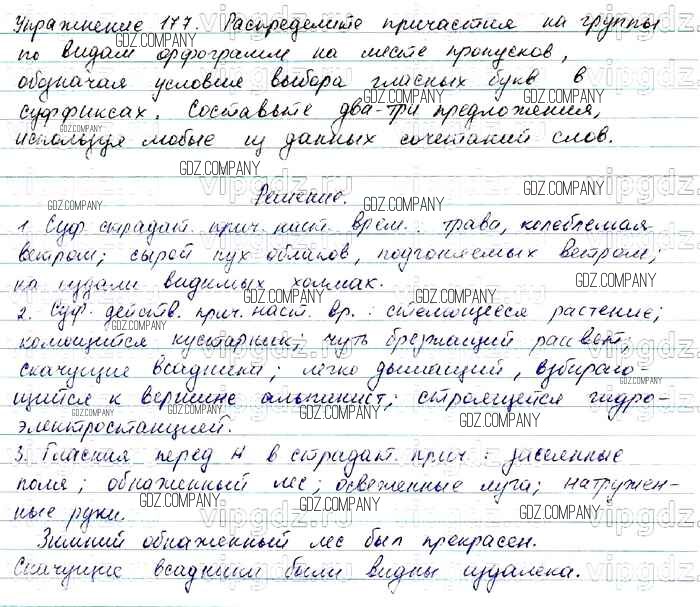 Упражнение 177. Распределите причастия на группы
по видам орфограмм на месте пропусков,
обозначая условия выбора гласных букв в
суффиксах. Составьте два-три предложения,
используя любые из данных сочетаний слов.
Решение.
1. Суф. страдат. прич. наст. врем.: трава, колеблемая
ветром; сырой пух облаков, подгоняемых ветром;
на издали видимых холмах.
2. Суф. действ. прич. наст. вр.: стелющееся растение;
колющийся кустарник; чуть брезжащий рассвет,
скачущие всадники; легко дышащий, взбираю-
щийся к вершине альпинист; строящейся гидро-
электростанцией.
3. Гласная перед Н в страдат. прич.: засеянные
поля; обнаженный лес; освещенные луга; натружен-
ные руки.
Зимний обнаженный лес был прекрасен.
Скачущие всадники были видны издалека.
GDZ.COMPANY
vipgdz.ru